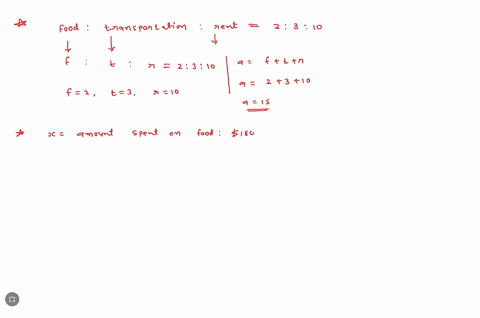 ☆ food : transportation : rent = 2 : 3 : 10
↓ ↓ ↓
f : t : r = 2 : 3 : 10
f = 2, t = 3, r = 10
a = f + t + r
a = 2 + 3 + 10
a = 15
☆ x = amount spent on food : $180